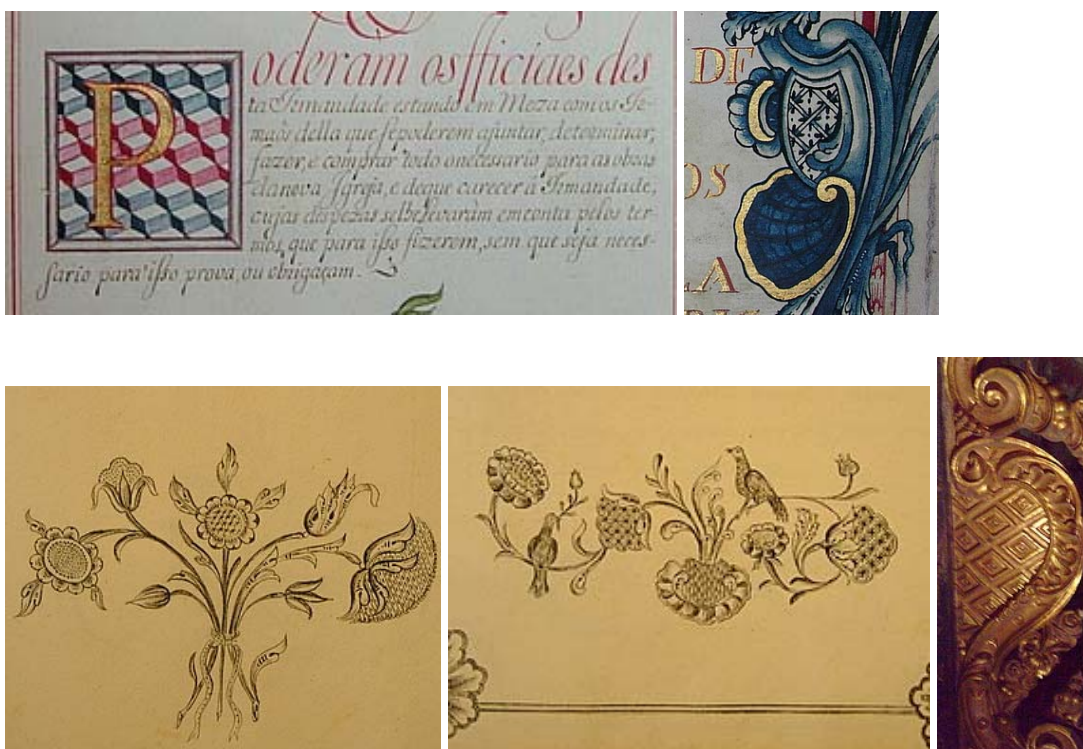 Poderam os officiaes des
ta Irmandade estando em Meza com os Ir-
maõs della que se poderem ajuntar, determinar,
fazer, e comprar todo o necessario para as obras
da nova Igreja, e de que carecer a Irmandade,
cujas despezas se lhe levaràm em conta pelos ter-
mos, que para isso fizerem, sem que seja neces-
sario para isso prova, ou obrigaçam.
DE
OS
LA